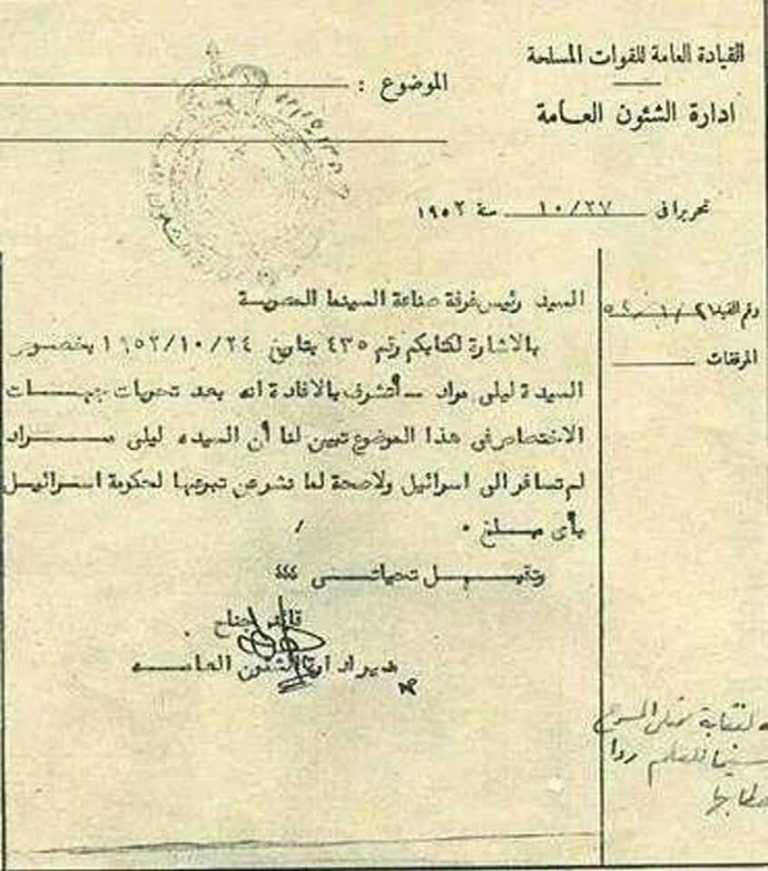 القيادة العامة للقوات المسلحة
ادارة الشئون العامة
الموضوع :
تحريرا فى ١٠/٢٧ سنة ١٩٥٢
رقم القيد
المرفقات
السيد رئيس غرفة صناعة السينما المصرية
بالاشارة لكتابكم رقم ٤٣٥ بتاريخ ١٩٥٢/١٠/٢٤ بخصوص
السيدة ليلى مراد - أتشرف بالافادة انه بعد تحريات جهات
الاختصاص فى هذا الموضوع تبين لنا أن السيده ليلى مراد
لم تسافر الى اسرائيل ولاصحة لما نشر عن تبرعها لحكومة اسرائيل
بأى مبلغ ٠
وتقبل تحياتى ،،،
قائد جناح
مدير ادارة الشئون العامه
لنقابة ممثلى المسرح